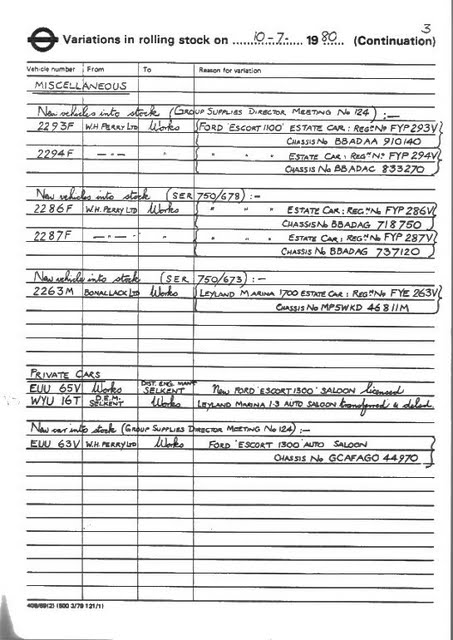 3
Variations in rolling stock on 10-7- 1980 (Continuation)
Vehicle number From To Reason for variation
MISCELLANEOUS
New vehicles into stock (GROUP SUPPLIES DIRECTOR MEETING No 124) :-
2293F W.H. PERRY LTD Works FORD 'ESCORT 1100' ESTATE CAR: REGN No FYP 293V
CHASSIS No BBADAA 910140
2294F —"— " " " " ESTATE CAR: REGN No FYP 294V
CHASSIS No BBADAC 833270
New vehicles into stock (SER 750/678) :-
2286F W.H. PERRY LTD Works " " " ESTATE CAR: REGN No FYP 286V
CHASSIS No BBADAG 718750
2287F —"— " " " " ESTATE CAR: REGN No FYP 287V
CHASSIS No BBADAG 737120
New vehicle into stock (SER 750/673) :-
2263M BONALLACK LTD Works LEYLAND MARINA 1700 ESTATE CAR: REGN No FYE 263V
CHASSIS No MP5WKD 46811M
PRIVATE CARS
EUU 65V Works DIST. ENG. MANR SELKENT New FORD 'ESCORT 1300' SALOON licensed
WYU 16T D.E.M. SELKENT Works LEYLAND MARINA 1·3 AUTO SALOON transferred & delicd.
New car into stock (GROUP SUPPLIES DIRECTOR MEETING No 124) :-
EUU 63V W.H. PERRY LTD Works FORD 'ESCORT 1300' AUTO SALOON
CHASSIS No GCAFAGO 44970
409/69(2) (500 3/79 121/1)